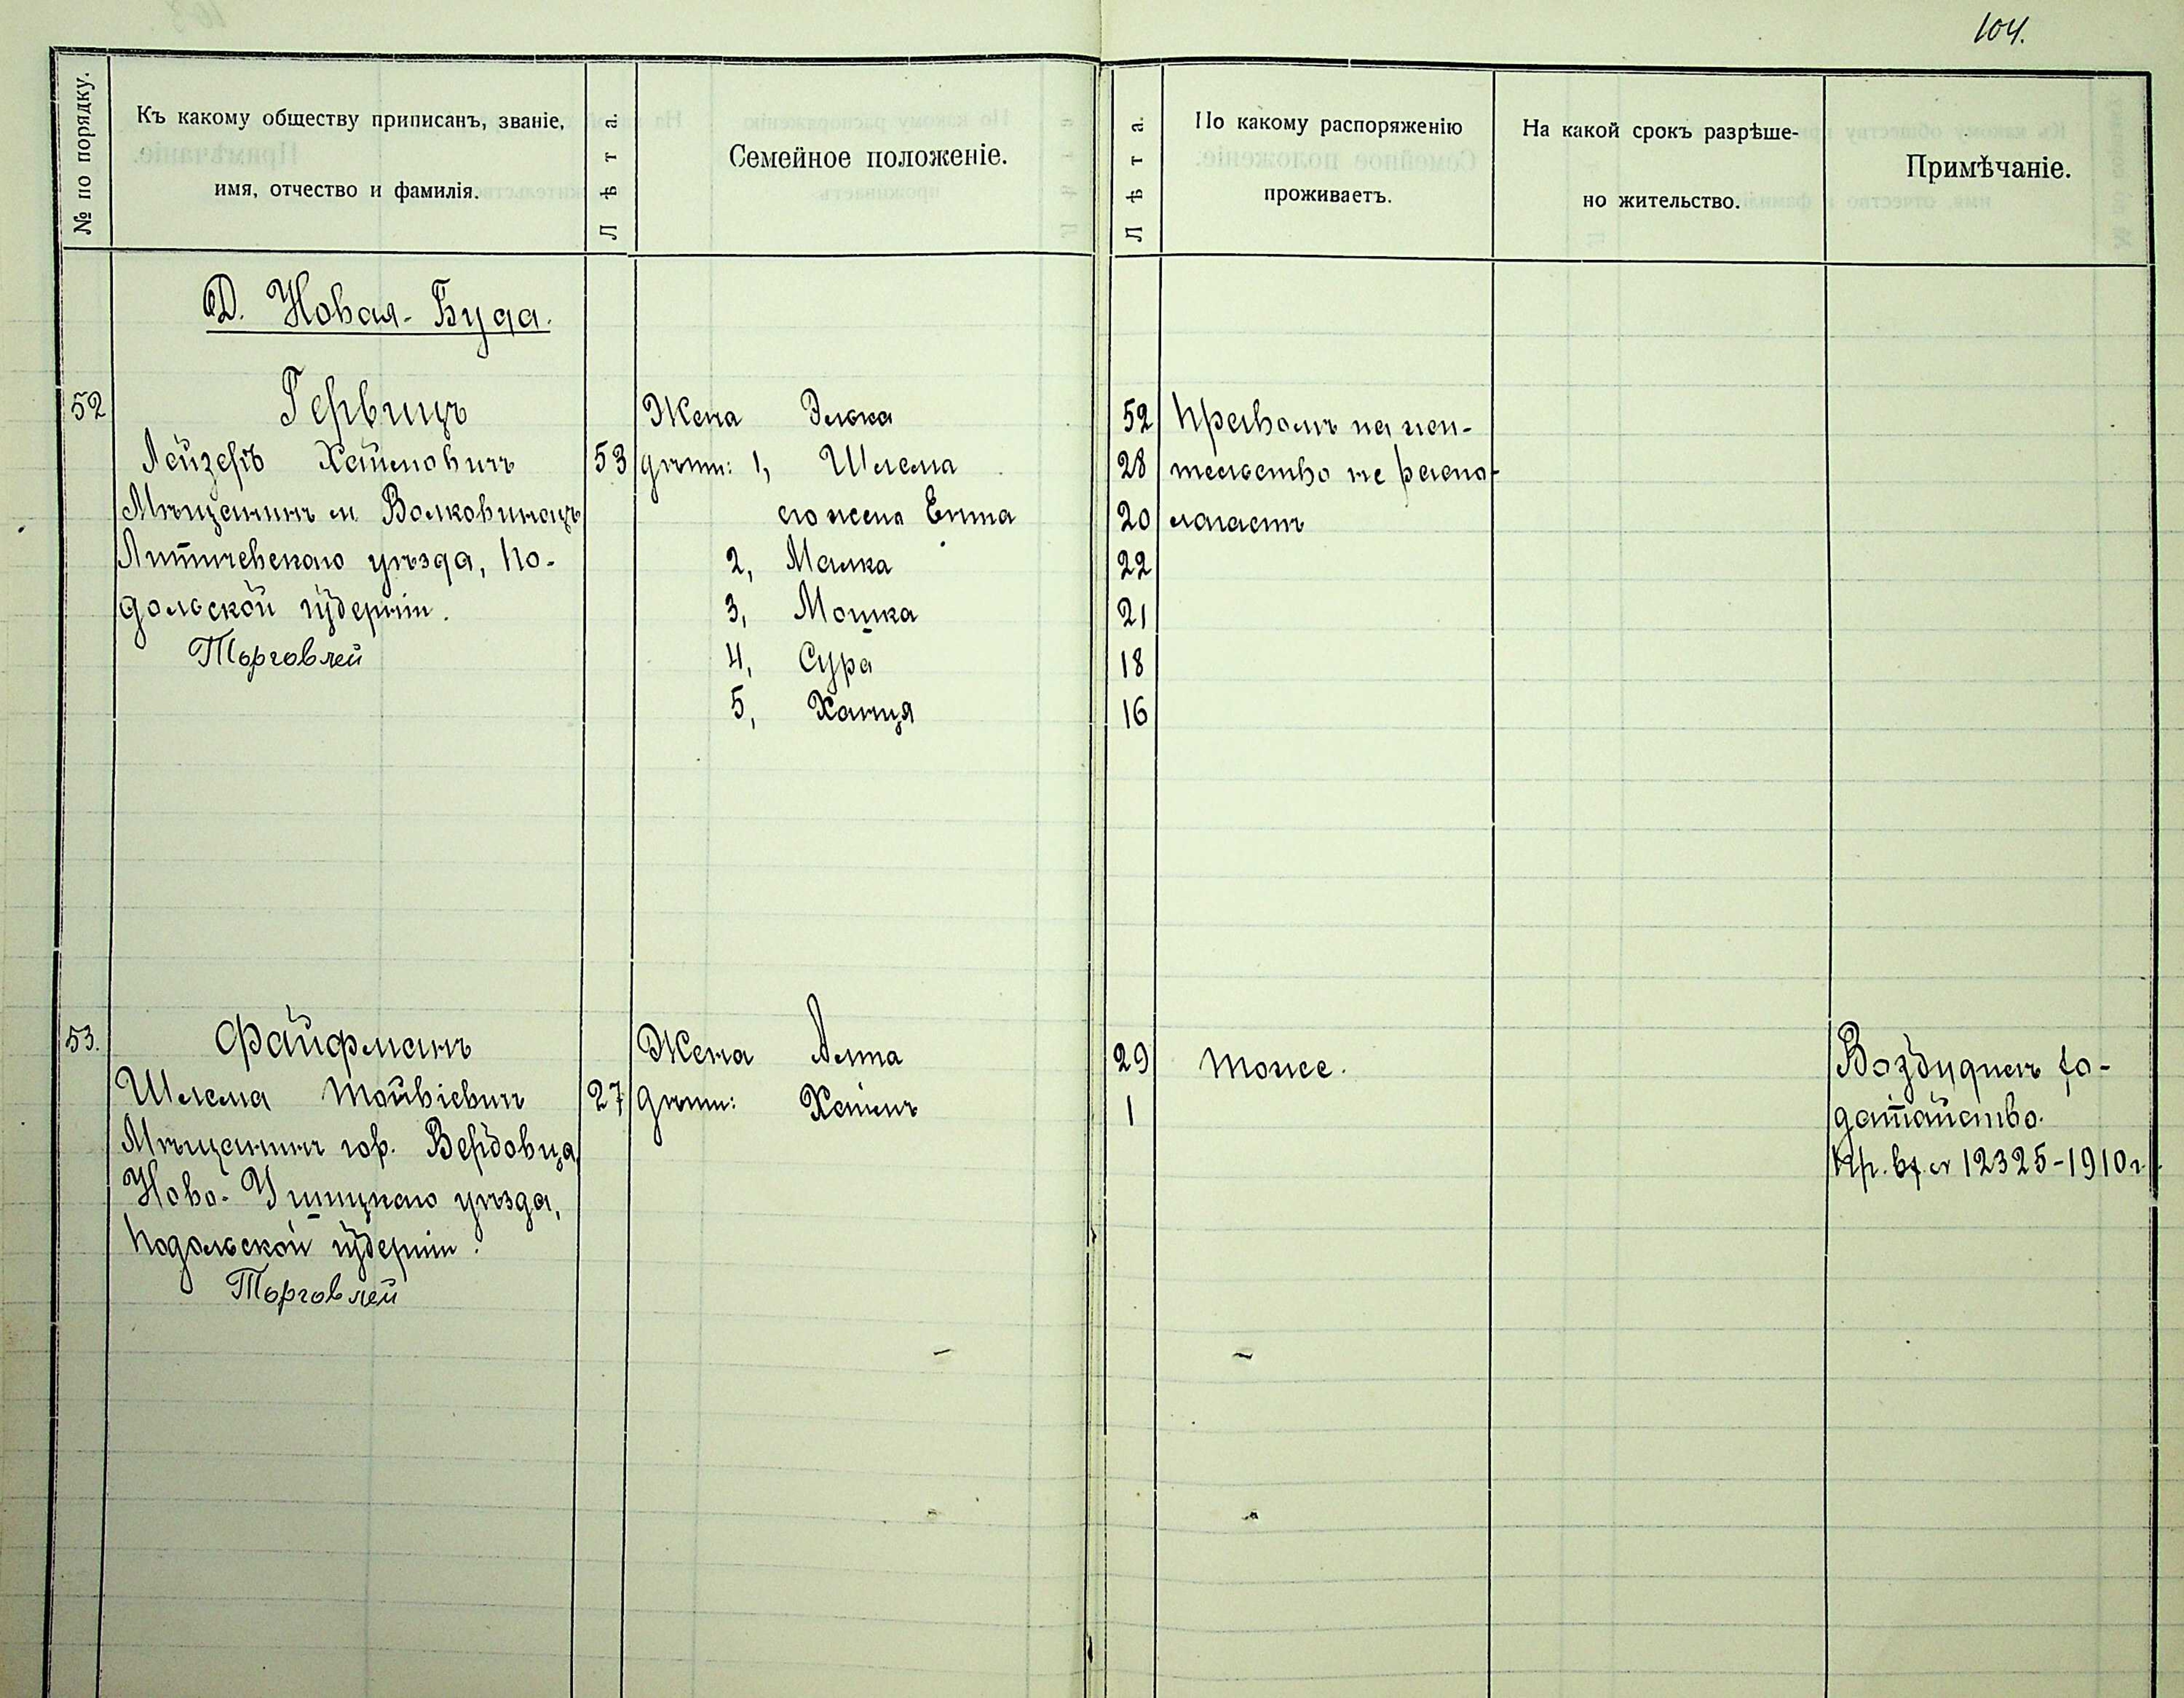 104.
№ по порядку.
Къ какому обществу приписанъ, званіе,
имя, отчество и фамилія.
Лѣта.
Семейное положеніе.
Лѣта.
По какому распоряженію
проживаетъ.
На какой срокъ разрѣше-
но жительство.
Примѣчаніе.
Д. Новая-Буда.
52
Гервицъ
Лейзеръ Хаимовичъ
53
Мѣщанинъ м Волковинецъ
Литичевскаго уѣзда, По-
дольской губерніи.
Торговлей
Жена Элька
52
дѣти: 1, Шлема
28
его жена Ента
20
2, Малка
22
3, Мошка
21
4, Сура
18
5, Ханця
16
Правомъ на жи-
тельство не распо-
лагаетъ
53.
Файфманъ
Шлема Тойвіевичъ
27
Мѣщанинъ гор. Вербовца,
Ново-Ушицкаго уѣзда,
Подольской губерніи.
Торговлей
Жена Алта
29
дѣти: Хаимъ
1
тоже.
Возбудилъ хо-
датайство.
12325-1910г.